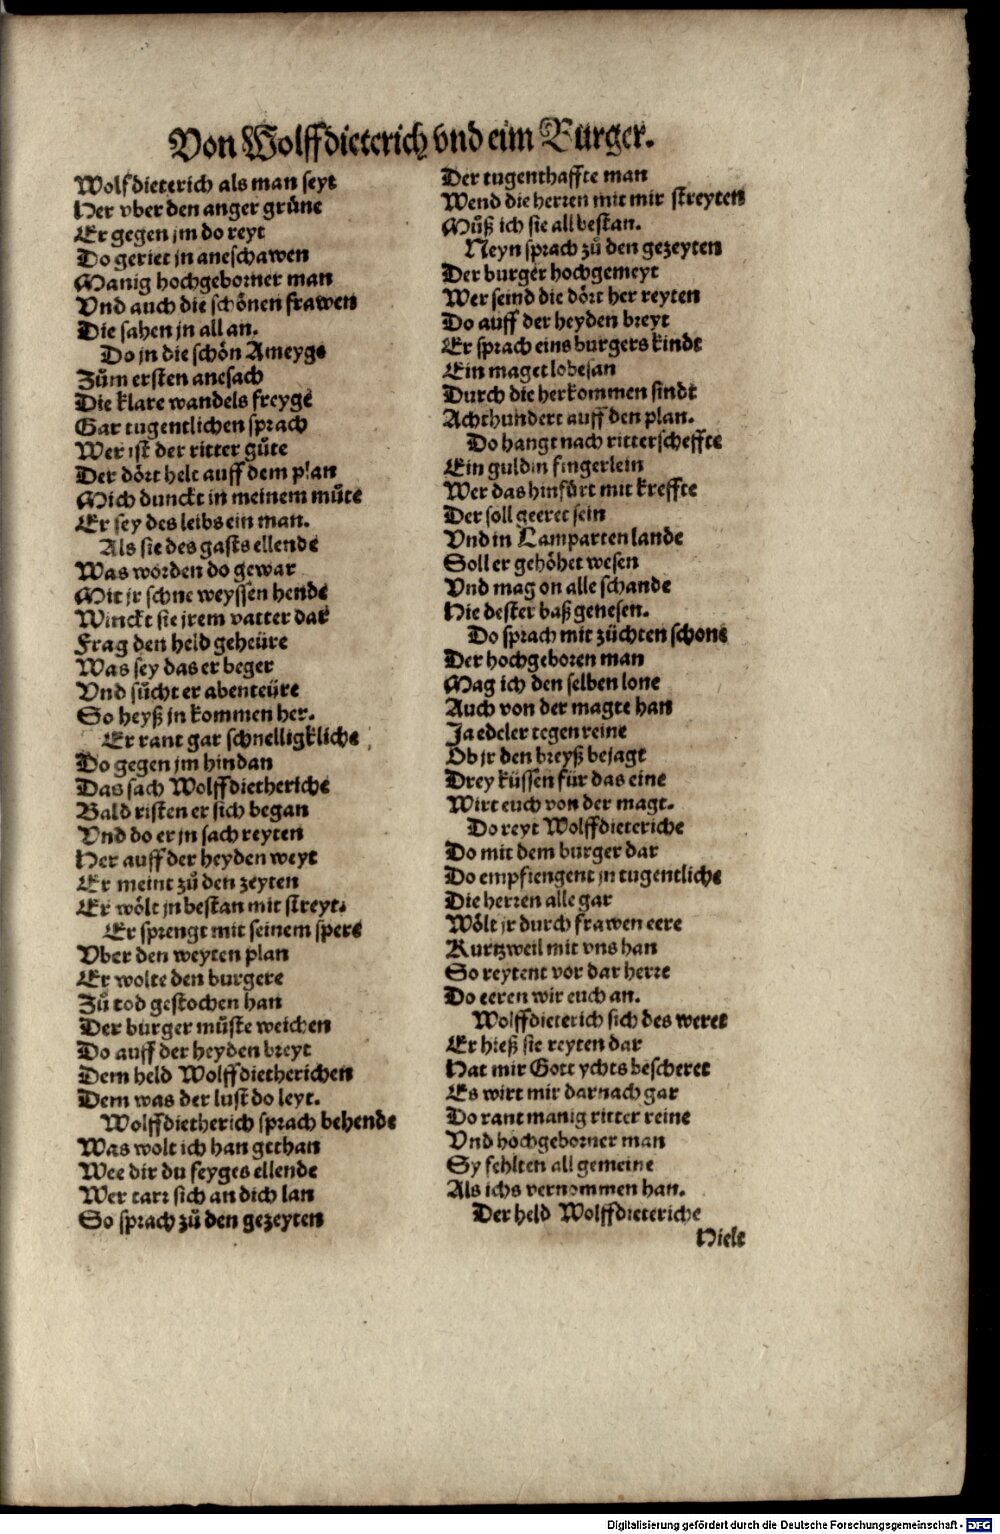 Von Wolffdieterich vnd eim Burger.
Wolfdieterich als man seyt
Her vber den anger grüne
Er gegen jm do reyt
Do geriet jn aneschawen
Manig hochgeborner man
Vnd auch die schönen frawen
Die sahen jn all an.
Do jn die schön Ameyge
Zům ersten anesach
Die klare wandels freyge
Gar tugentlichen sprach
Wer ist der ritter gůte
Der dört helt auff dem plan
Mich dunckt in meinem můte
Er sey des leibs ein man.
Als sie des gasts ellende
Was worden do gewar
Mit jr schne weyssen hende
Winckt sie jrem vatter dar
Frag den held geheüre
Was sey das er beger
Vnd sůcht er abenteüre
So heyß jn kommen her.
Er rant gar schnelligkliche
Do gegen jm hindan
Das sach Wolffdietheriche
Bald risten er sich began
Vnd do er jn sach reyten
Her auff der heyden weyt
Er meint zů den zeyten
Er wölt jn bestan mit streyt.
Er sprengt mit seinem spere
Vber den weyten plan
Er wolte den burgere
Zů tod gestochen han
Der burger můste weichen
Do auff der heyden breyt
Dem held Wolffdietherichen
Dem was der lust do leyt.
Wolffdietherich sprach behende
Was wolt ich han gethan
Wee dir du feyges ellende
Wer tarr sich an dich lan
So sprach zů den gezeyten
Der tugenthaffte man
Wend die herren mit mir streyten
Můß ich sie all bestan.
Neyn sprach zů den gezeyten
Der burger hochgemeyt
Wer seind die dört her reyten
Do auff der heyden breyt
Er sprach eins burgers kinde
Ein maget lobesan
Durch die herkommen sindt
Achthundert auff den plan.
Do hangt nach ritterscheffte
Ein guldin fingerlein
Wer das hinfürt mit kreffte
Der soll geeret sein
Vnd in Lamparten lande
Soll er gehöhet wesen
Vnd mag on alle schande
Hie dester baß genesen.
Do sprach mit züchten schone
Der hochgeboren man
Mag ich den selben lone
Auch von der magte han
Ja edeler tegen reine
Ob jr den breyß bejagt
Drey küssen für das eine
Wirt euch von der magt.
Do reyt Wolffdieteriche
Do mit dem burger dar
Do empfiengent jn tugentliche
Die herren alle gar
Wölt jr durch frawen eere
Kurtzweil mit vns han
So reytent vor dar herre
Do eeren wir euch an.
Wolffdieterich sich des weret
Er hieß sie reyten dar
Hat mir Gott ychts bescheret
Es wirt mir darnach gar
Do rant manig ritter reine
Vnd hochgeborner man
Sy fehlten all gemeine
Als ichs vernommen han.
Der held Wolffdieteriche
Hielt
Digitalisierung gefördert durch die Deutsche Forschungsgemeinschaft - DFG